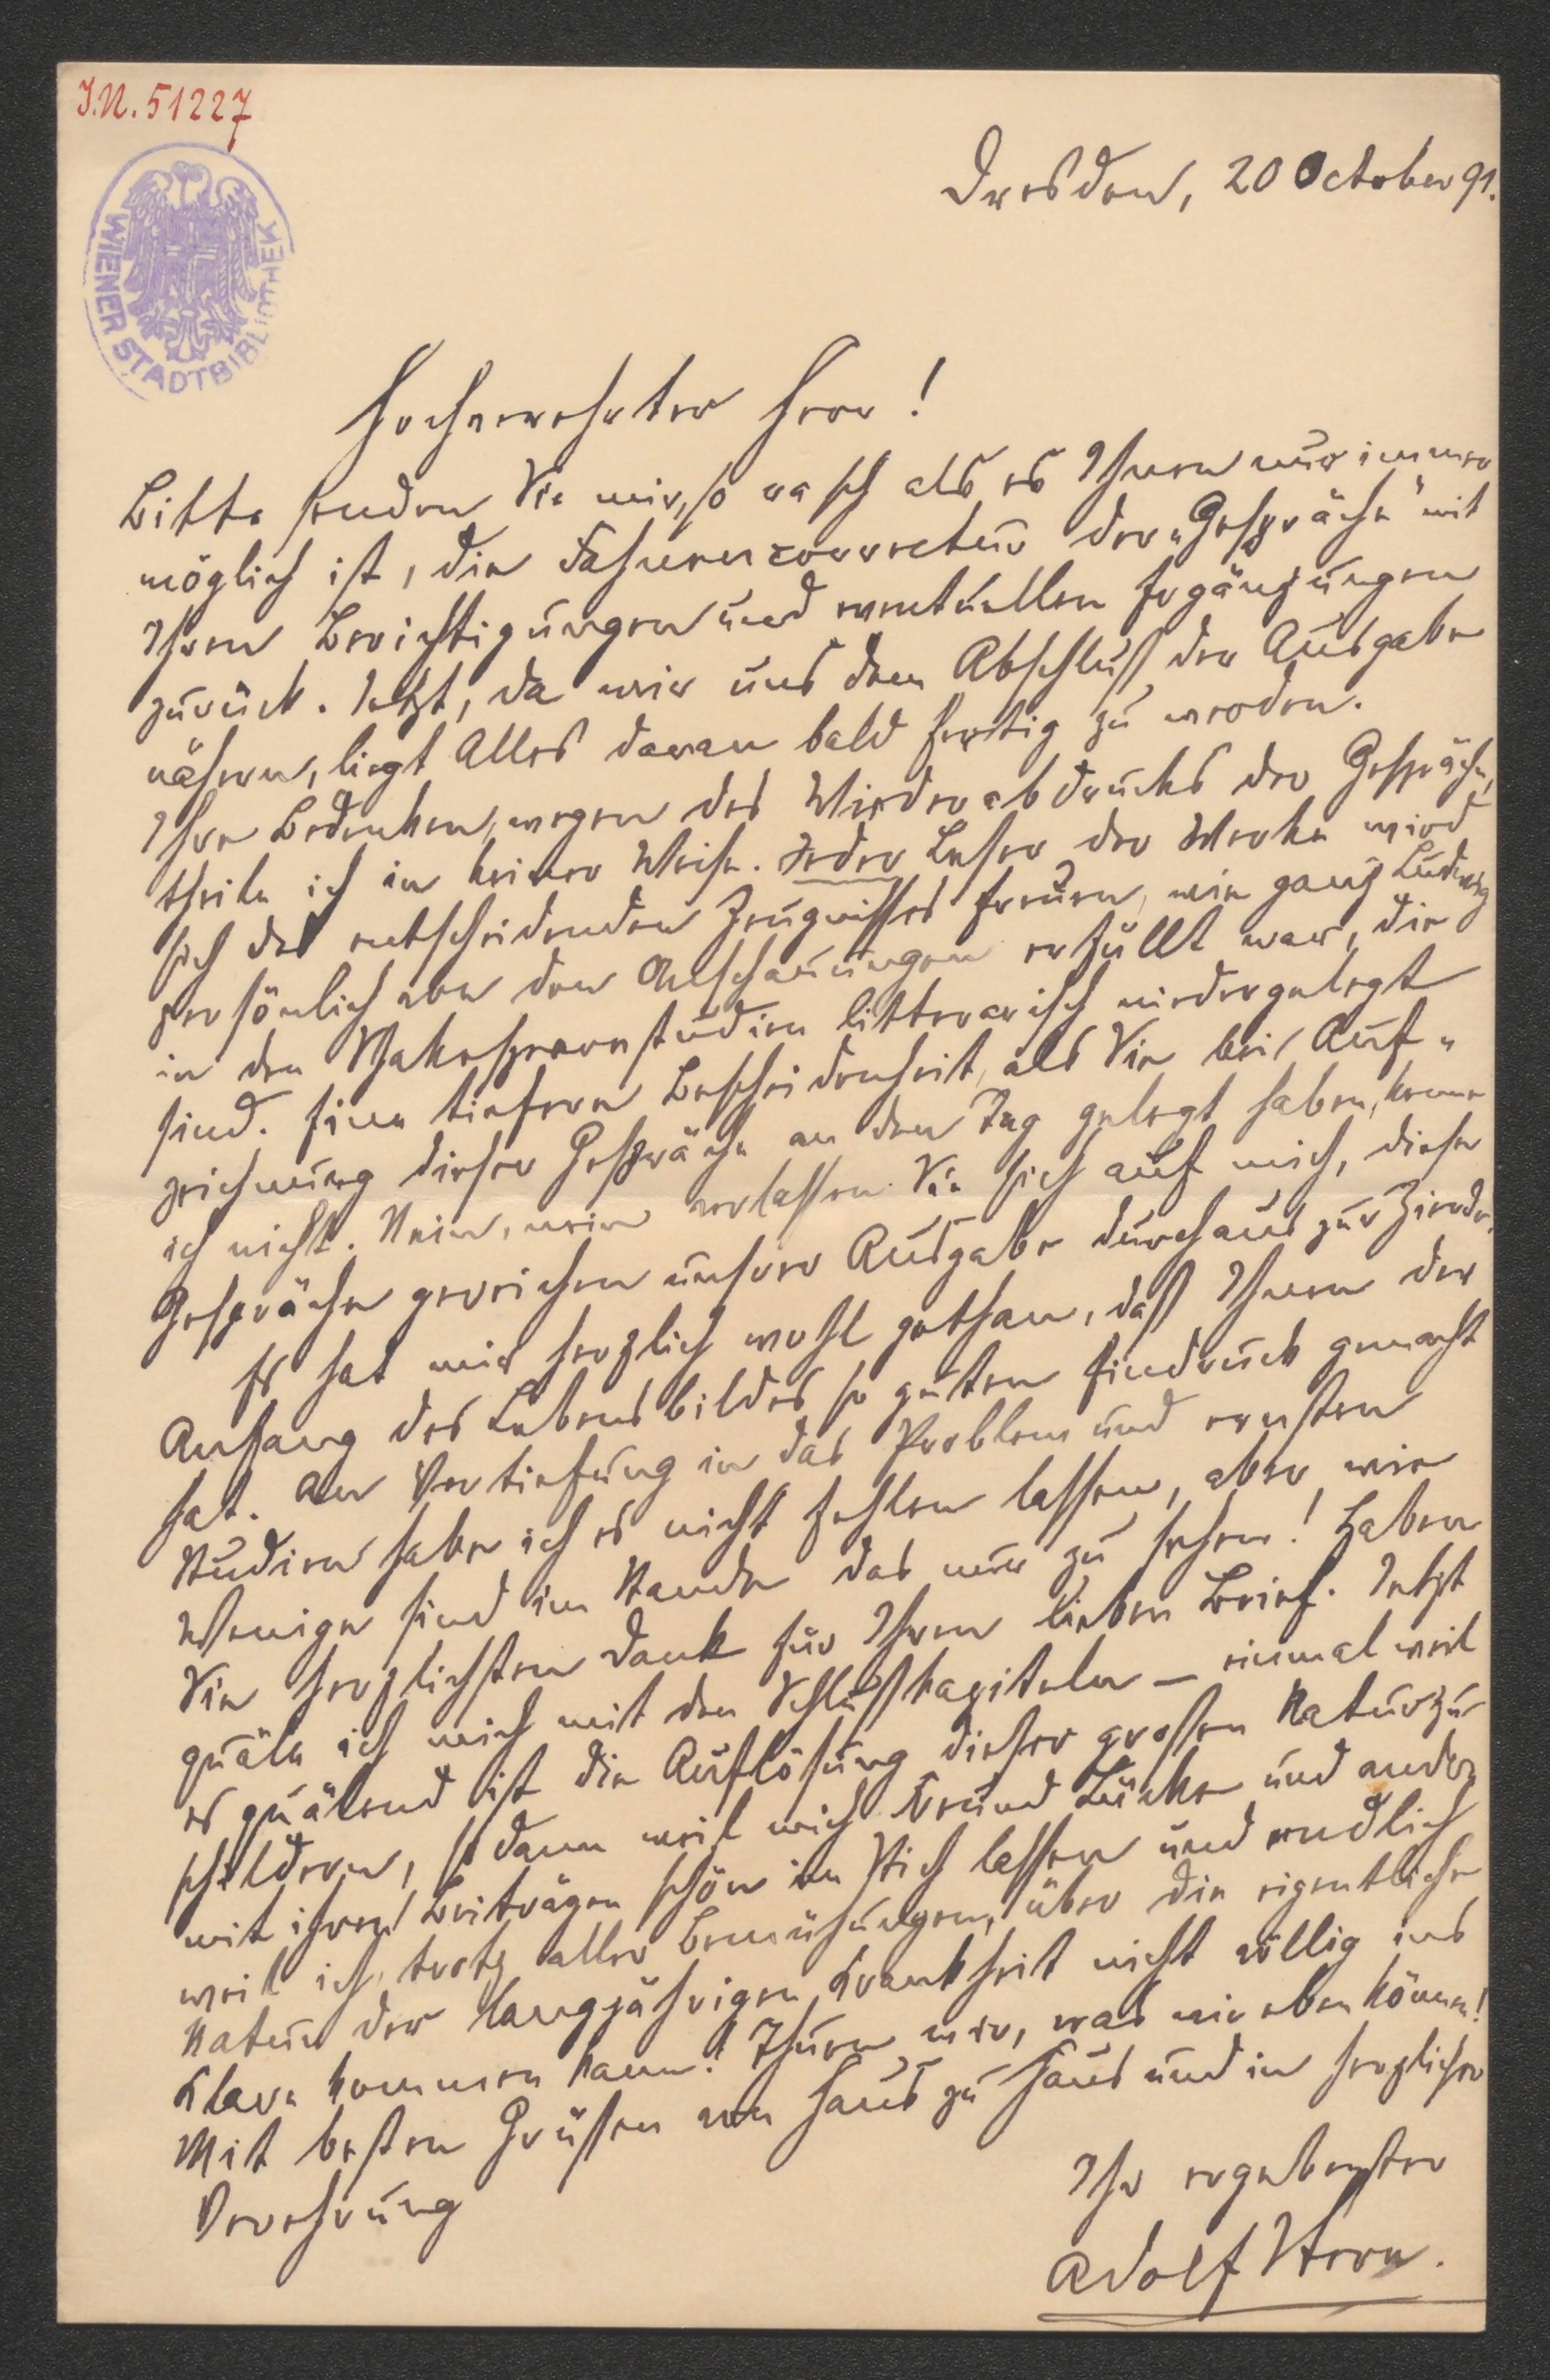 I.N. 51227
WIENER STADTBIBLIOTHEK
Dresden, 20 October 91.
Hochverehrter Herr!
Bitte senden Sie mir, so rasch als es Ihnen nur immer
möglich ist, die Fahnencorrectur der „Gespräche" mit
Ihren Berichtigungen und eventuellen Ergänzungen
zurück. Jetzt, da wir uns dem Abschluß der Ausgabe
nähern, liegt Alles daran bald fertig zu werden.
Ihre Bedenken, wegen des Wiederabdrucks der Gespräche,
theile ich in keiner Weise. Jeder Leser der Werke wird
sich des entscheidenden Zeugnisses freuen, wie ganz Ludwig
persönlich von den Anschauungen erfüllt war, die
in den Shakespearestudien litterarisch niedergelegt
sind. Eine tiefere Bescheidenheit, als Sie bei Auf-
zeichnung dieser Gespräche an den Tag gelegt haben, kenne
ich nicht. Nein, nein verlassen Sie sich auf mich, diese
Gespräche gereichen unserer Ausgabe durchaus zur Zierde.
Es hat mir herzlich wohl gethan, daß Ihnen der
Anfang des Lebensbildes so guten Eindruck gemacht
hat. An Vertiefung in das Problem und ernsten
Studien habe ich es nicht fehlen lassen, aber wie
Wenige sind im Stande das nur zu sehen! Haben
Sie herzlichsten Dank für Ihren lieben Brief. Jetzt
quäle ich mich mit den Schlußkapiteln – einmal weil
es quälend ist die Auflösung dieser großen Natur zu
schildern, so dann weil mich Freund Lücke und andere
mit ihren Beiträgen schön im Stich lassen und endlich
weil ich, trotz aller Bemühungen, über die eigentliche
Natur der langjährigen Krankheit nicht völlig ins
Klare kommen kann! Thuen wir, was wir eben können!
Mit besten Grüßen von Haus zu Haus und in herzlicher
Verehrung
Ihr ergebenster
Adolf Stern.